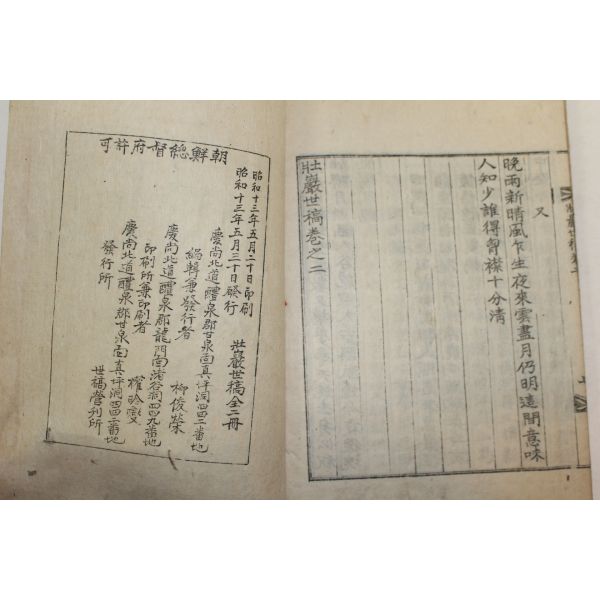 又
晩雨新晴風乍生夜來雲盡月仍明這間意味
人知少誰得胷襟十分清
壯巖世稿卷之二
朝鮮總督府許可
昭和十三年五月二十日印刷
昭和十三年五月三十日發行
壯巖世稿全二冊
慶尙北道醴泉郡甘泉面眞坪洞四四二番地
編輯兼發行者 柳俊榮
慶尙北道醴泉郡龍門面渚谷洞四四九番地
印刷所兼印刷者 權
慶尙北道醴泉郡甘泉面眞坪洞四四二番地
發行所 世稿營刊所